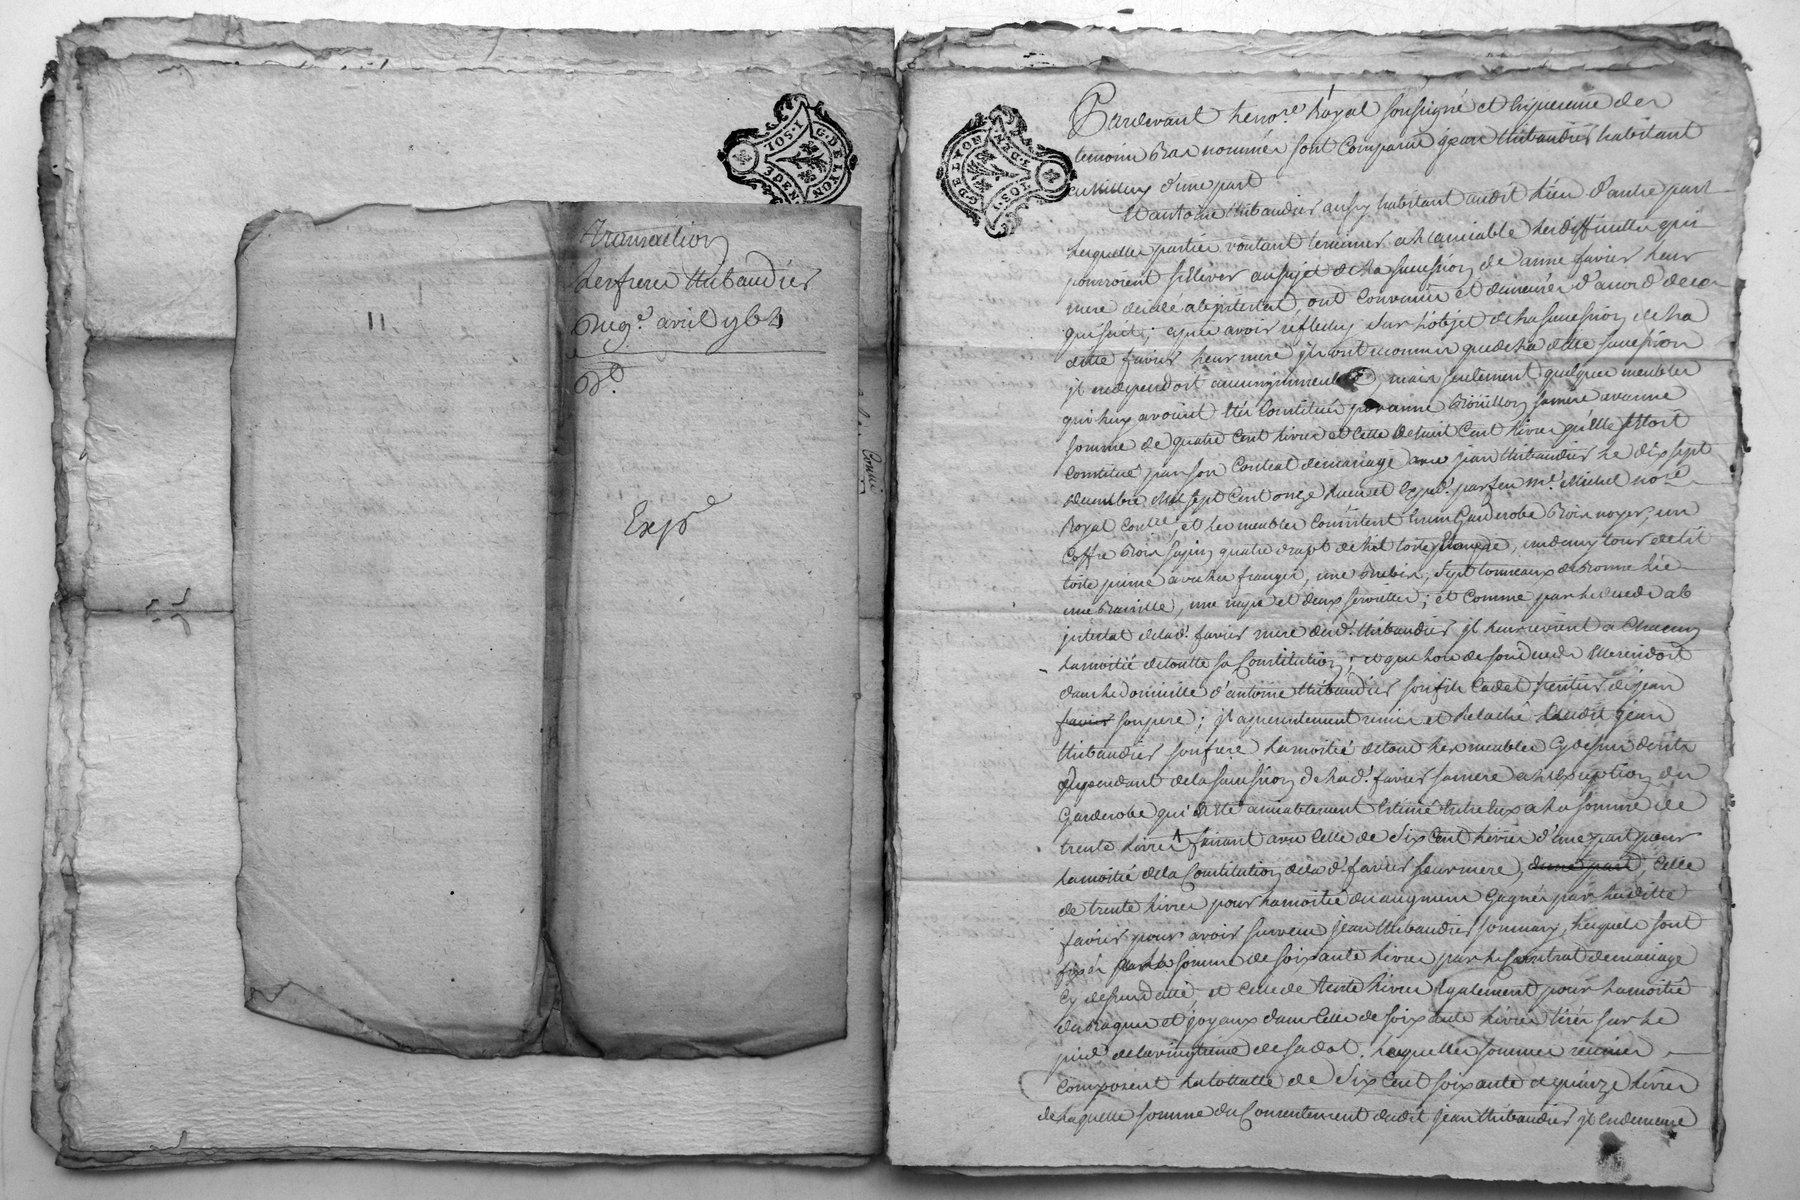 Transaction
des freres Thibaudier
Du 9e avril 1764
Bd
11
Expde
G. DE LYON
1. SOL
3 DEN
G. DE LYON
Pardevant le nore Royal soussigné et En presence des
temoins Bas nommés sont Comparus jean thibaudier habitant
d'une part
Et antoine thibaudier aussy habitant audit lieu d'autre part
lesquelles parties voulant terminer a L'amiable les difficultés qui
pourroient s'Elever au sujet de la succession de anne favier leur
mere decedé abjntestat, ont Convenus et demeurés d'accord de ce
qui suit; apres avoir reflechy sur L'objet de la succession de la
ditte favier leur mere jls ont reconnus que de la ditte succession
jl ne dependoit aucuns jmmeubles, mais seulement quelques meubles
qui luy avoient Etés Constitués par anne Brouillon sa mere avec une
somme de quatre Cent livres et celle de huit Cent livres qu'Elle s'Estoit
Constitué par son Contrat de mariage avec jean thibaudier le dix sept
decembre mil sept Cent onze Receu et Expd. par feu me. Michel nore
Royal et les meubles Consistent En un Garderobe Bois noyer, un
Coffre Bois sapin, quatre draps de lit toile, un demy tour de lit
toile prime avec les franges, une Brebis, sept tonneaux de Bonne lie
une et deux serviettes; et Comme par le deceds ab
jntestat de lad. favier mere desd. thibaudier jl leur revient a Chacun
la moitié de toutte sa Constitution; et que lors de son deceds Elle residoit
dans le domicille d'antoine thibaudier son fils Cadet heritier de jean
favier son pere; jl a presentement remis et Relaché audit jean
thibaudier son frere la moitié de tous les meubles Cy dessus décrits
dependant de la succession de lad. favier sa mere a L'Exception du
Garderobe qui a Eté amiablement Estimé Entre Eux a la somme de
trente livres faisant avec Celle de six Cent livres d'une part pour
la moitié de la Constitution de lad. favier leur mere, d'une part, Celle
de trente livres pour la moitié du augment Gagnés par laditte
favier pour avoir survecu jean thibaudier son mary, lesquels sont
fixés somme de soixante livres par le Contrat de mariage
Cy dessus datté, et Celle de trente livres Egalement pour la moitié
des Bagues et joyaux dans Celle de soixante livres tirés sur le
pied de la vingtieme de sa dot. lesquelles sommes reunies
Composent la tottalle de six Cent soixante et quinze livres
de laquelle somme du Consentement dudit jean thibaudier jl En demeure